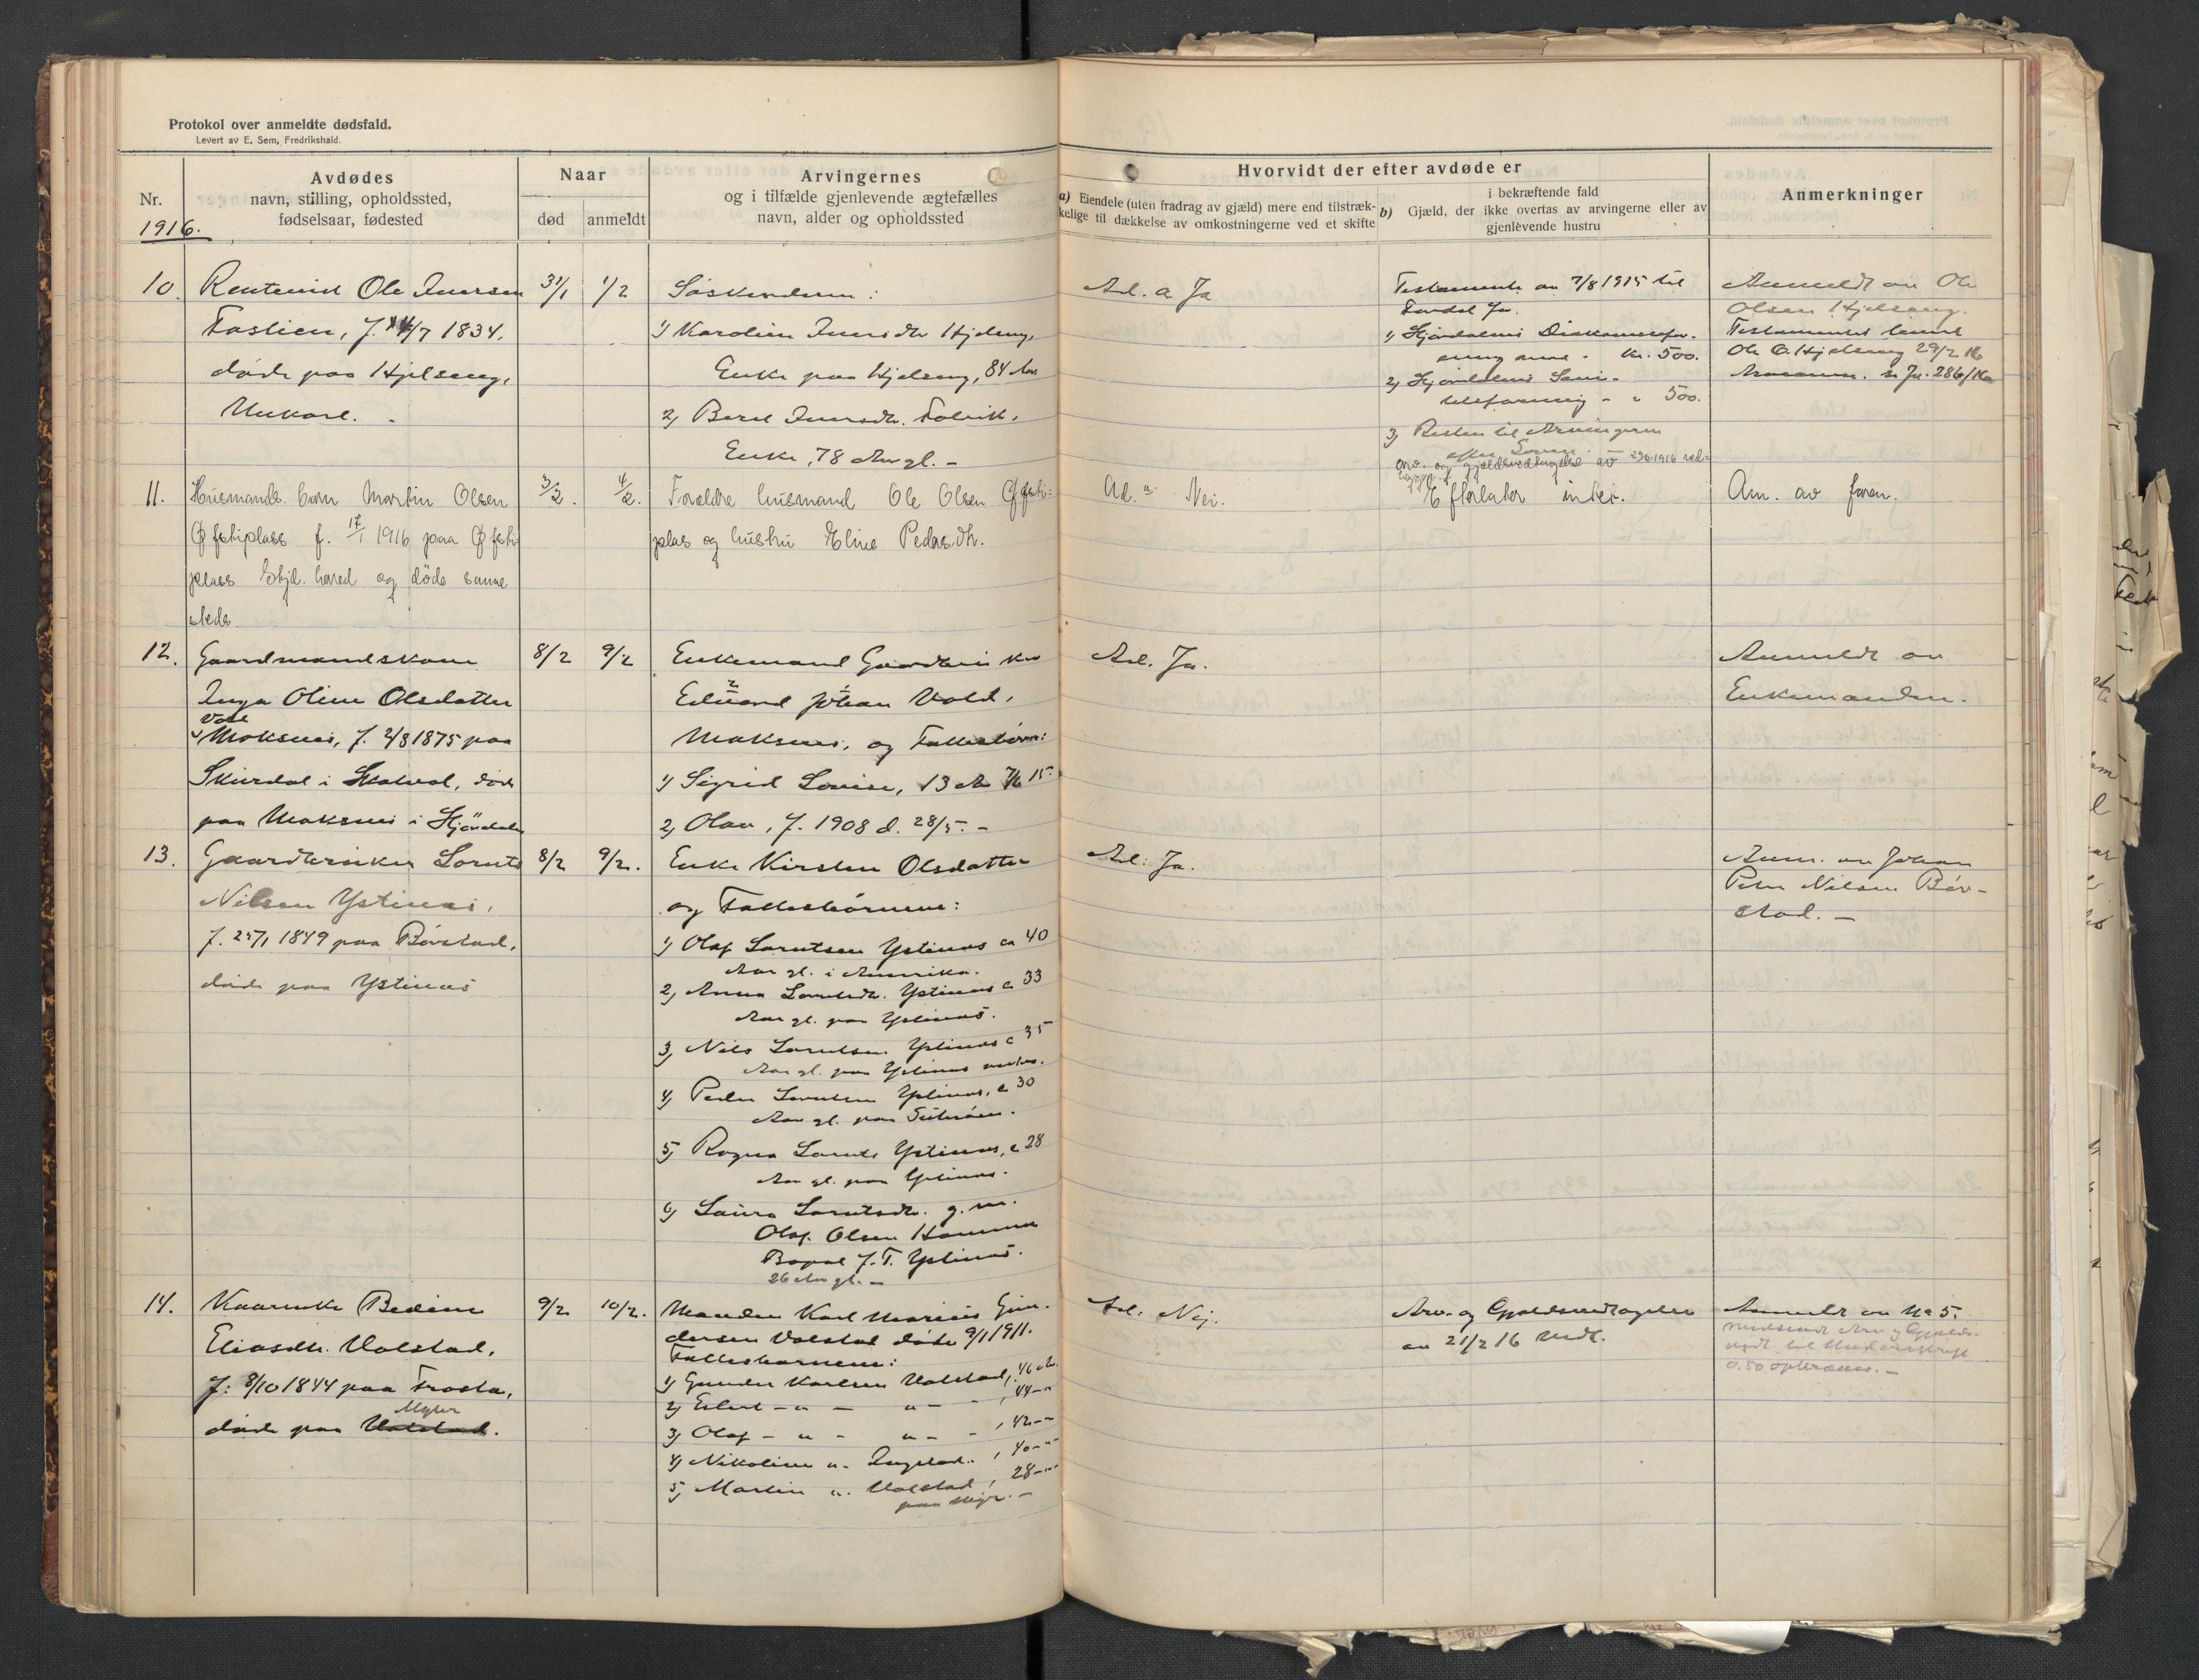 Protokol over anmeldte dødsfald.
Levert av E. Sem, Fredrikshald.
Nr.
1916.
Avdødes
navn, stilling, opholdssted,
fødselsaar, fødested
Naar
død
anmeldt
Arvingernes
og i tilfælde gjenlevende ægtefælles
navn, alder og opholdssted
Hvorvidt der efter avdøde er
a) Eiendele (uten fradrag av gjæld) mere end tilstræk-
kelige til dækkelse av omkostningerne ved et skifte
i bekræftende fald
b) Gjæld, der ikke overtas av arvingerne eller av
gjenlevende hustru
Anmerkninger
10.
Ole Iversen
1834,
døde paa Hjelseng,
31/1
1/2
Søskenderne:
1) Karoline Iversdtr Hjelseng,
Enke paa Hjelseng, 84 Aar
2) Beret Iversdtr.
Enke, 78 Aar gl. -
Ad. a Ja
Testamente av 7/8 1915 til
Fordel for
1) Stjørdalens
kr. 500.
2) Stjørdalens Sani-
tetsforening - " 500.
3) Resten til Arvingerne
efter Loven. -
Anmeldt av Ole
Olsen Hjelseng.
Testamentet
Ole O. Hjelseng 29/2 16
11.
Husmands barn Martin Olsen
Øfstiplass f. 17/1 1916 paa Øfsti
plass Stjd. hered og døde samme
steds
3/2.
4/2.
Foreldre husmand Ole Olsen Øfsti-
plas og hustru Eline Pedersdtr.
Ad. a. Nei.
Efterlater intet.
Am. av faren.
12.
Gaardmandskone
Inga Oline Olsdatter
Vold
Moksnes, f. 2/8 1875 paa
Skjerdal i Skatval, døde
paa Moksnes i Stjørdalen
8/2
9/2
Enkemand Gaardbruker
Edvard Johan Vold,
Moksnes, og Fællesbørn:
1) Sigrid Lovise, 13 Aar
2) Olav, f. 1908 d. 28/5. -
Ad. Ja.
Anmeldt av
Enkemanden.
13.
Gaardbruker Lornts
Nilsen Ystines,
f. 25/1 1849 paa Børstad,
døde paa Ystines
8/2
9/2.
Enke Kirsten Olsdatter
og Fællesbørnene:
1) Olaf Lorntsen Ystines ca 40
Aar gl. i Amerika.
2) Anna Lorntsdtr. Ystines c 33
Aar gl. paa Ystines.
3) Nils Lorntsen Ystines c 35
Aar gl. paa Ystines
4) Peder Lorntsen Ystines, c 30
Aar gl. paa
5) Ragna Lornts Ystines, c 28
Aar gl. paa Ystines.
6) Laura Lorntsdtr. g. m.
Olaf Olsen Hammer
Bopæl f. T. Ystines.
26 Aar gl. -
Ad: Ja.
Anm. av Johan
Peter Nilsen Bør-
stad. -
14.
Kaarenke Bedine
Eliasdtr. Valstad,
f: 8/10 1844 paa Frosta,
Myhr
døde paa Valstad.
9/2
10/2.
Manden Karl Marius Gun-
dersen Valstad døde 9/1 1911.
Fællesbarnene:
1) Gunder Karlsen Valstad, 46 Aar
2) Eilert - " - " - , 44 - "
3) Olaf - " - " - - , 42 - "
4) Nikoline " - Ingstad - , 40 - "
5) Martin " - Valstad, 28 - "
paa Myr. -
Ad: Nej.
Arv- og Gjældsvedtagelse
av 21/2 16 vedl.
Anmeldt av No 5.